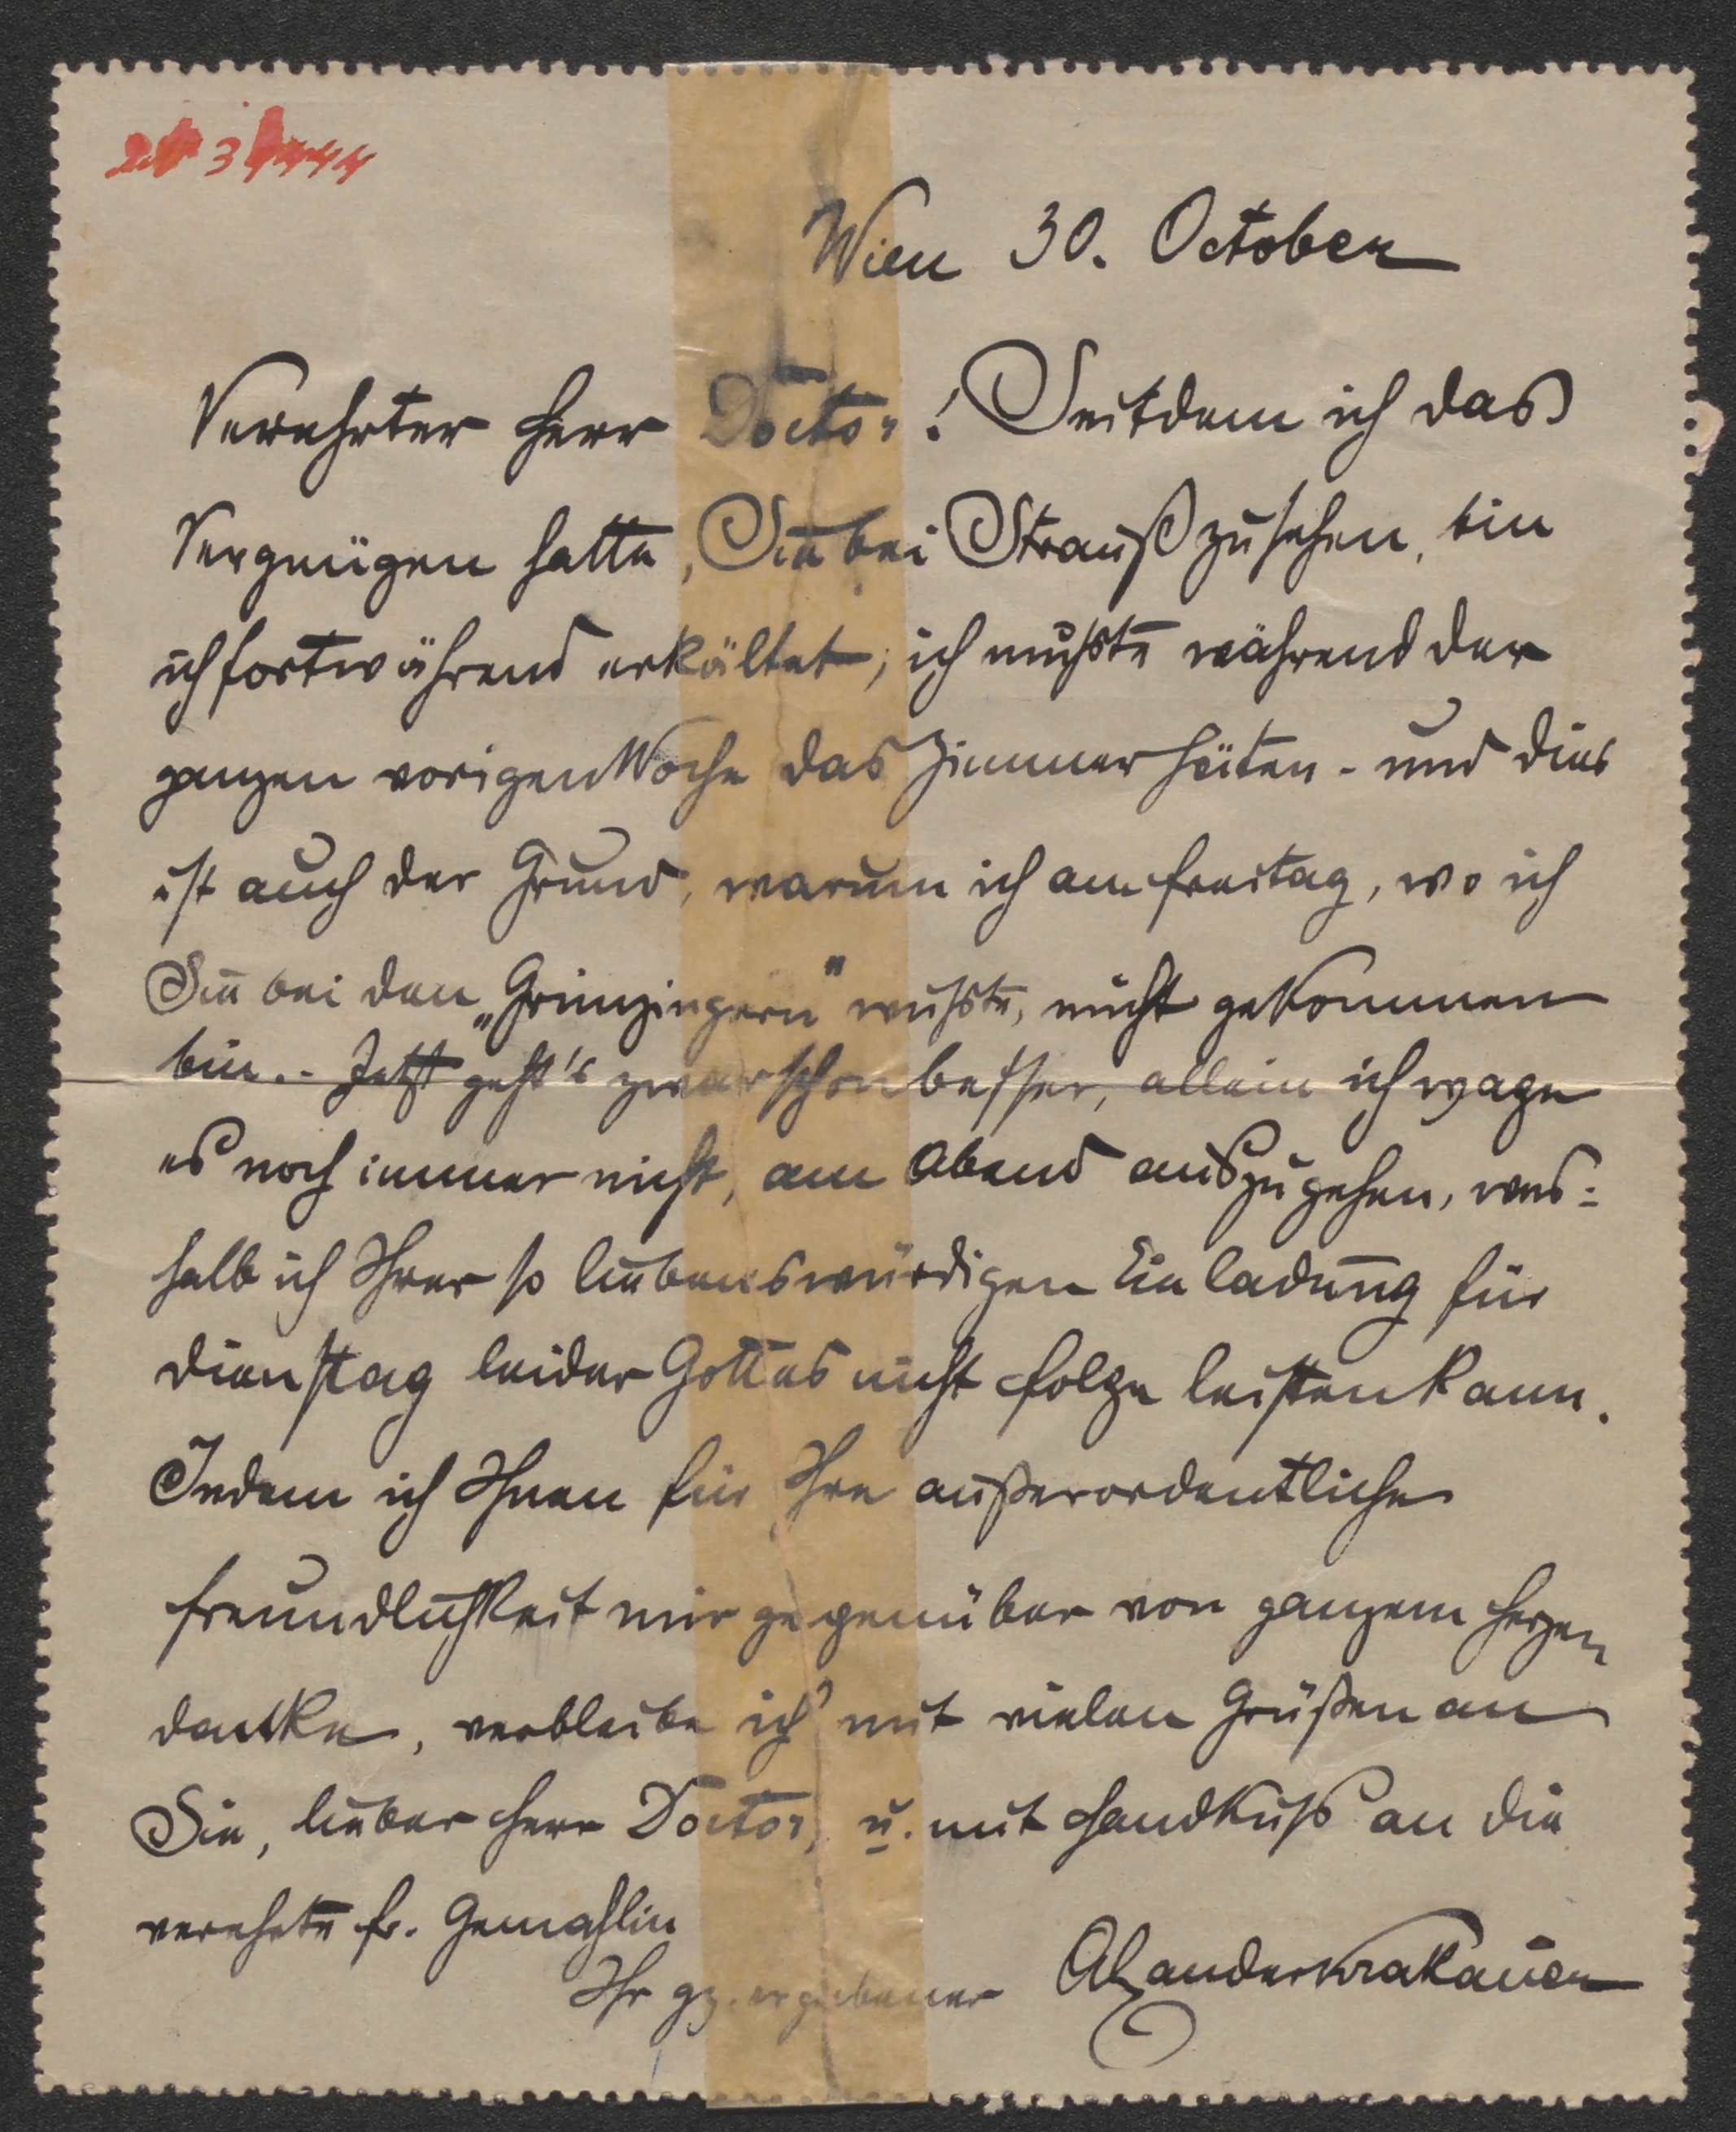 Wien 30. October
Verehrter Herr Doctor! Seitdem ich das
Vergnügen hatte, Sie bei Strauß zu sehen, bin
ich fortwährend erkältet; ich mußte während der
ganzen vorigen Woche das Zimmer hüten - und dies
ist auch der Grund, warum ich am Freitag, wo ich
Sie bei den „Grinzingern" wußte, nicht gekommen
bin. - Jetzt geht's zwar schon besser, allein ich wage
es noch immer nicht, am Abend auszugehen, wes=
halb ich Ihrer so liebenswürdigen Einladung für
Dienstag leider Gottes nicht Folge leisten kann.
Indem ich Ihnen für Ihre außerordentliche
Freundlichkeit mir gegenüber von ganzem Herzen
danke, verbleibe ich mit vielen Grüßen an
Sie, lieber Herr Doctor, u. mit Handkuß an die
verehrte Fr. Gemahlin
Ihr gz. ergebener Alexander Krakauer